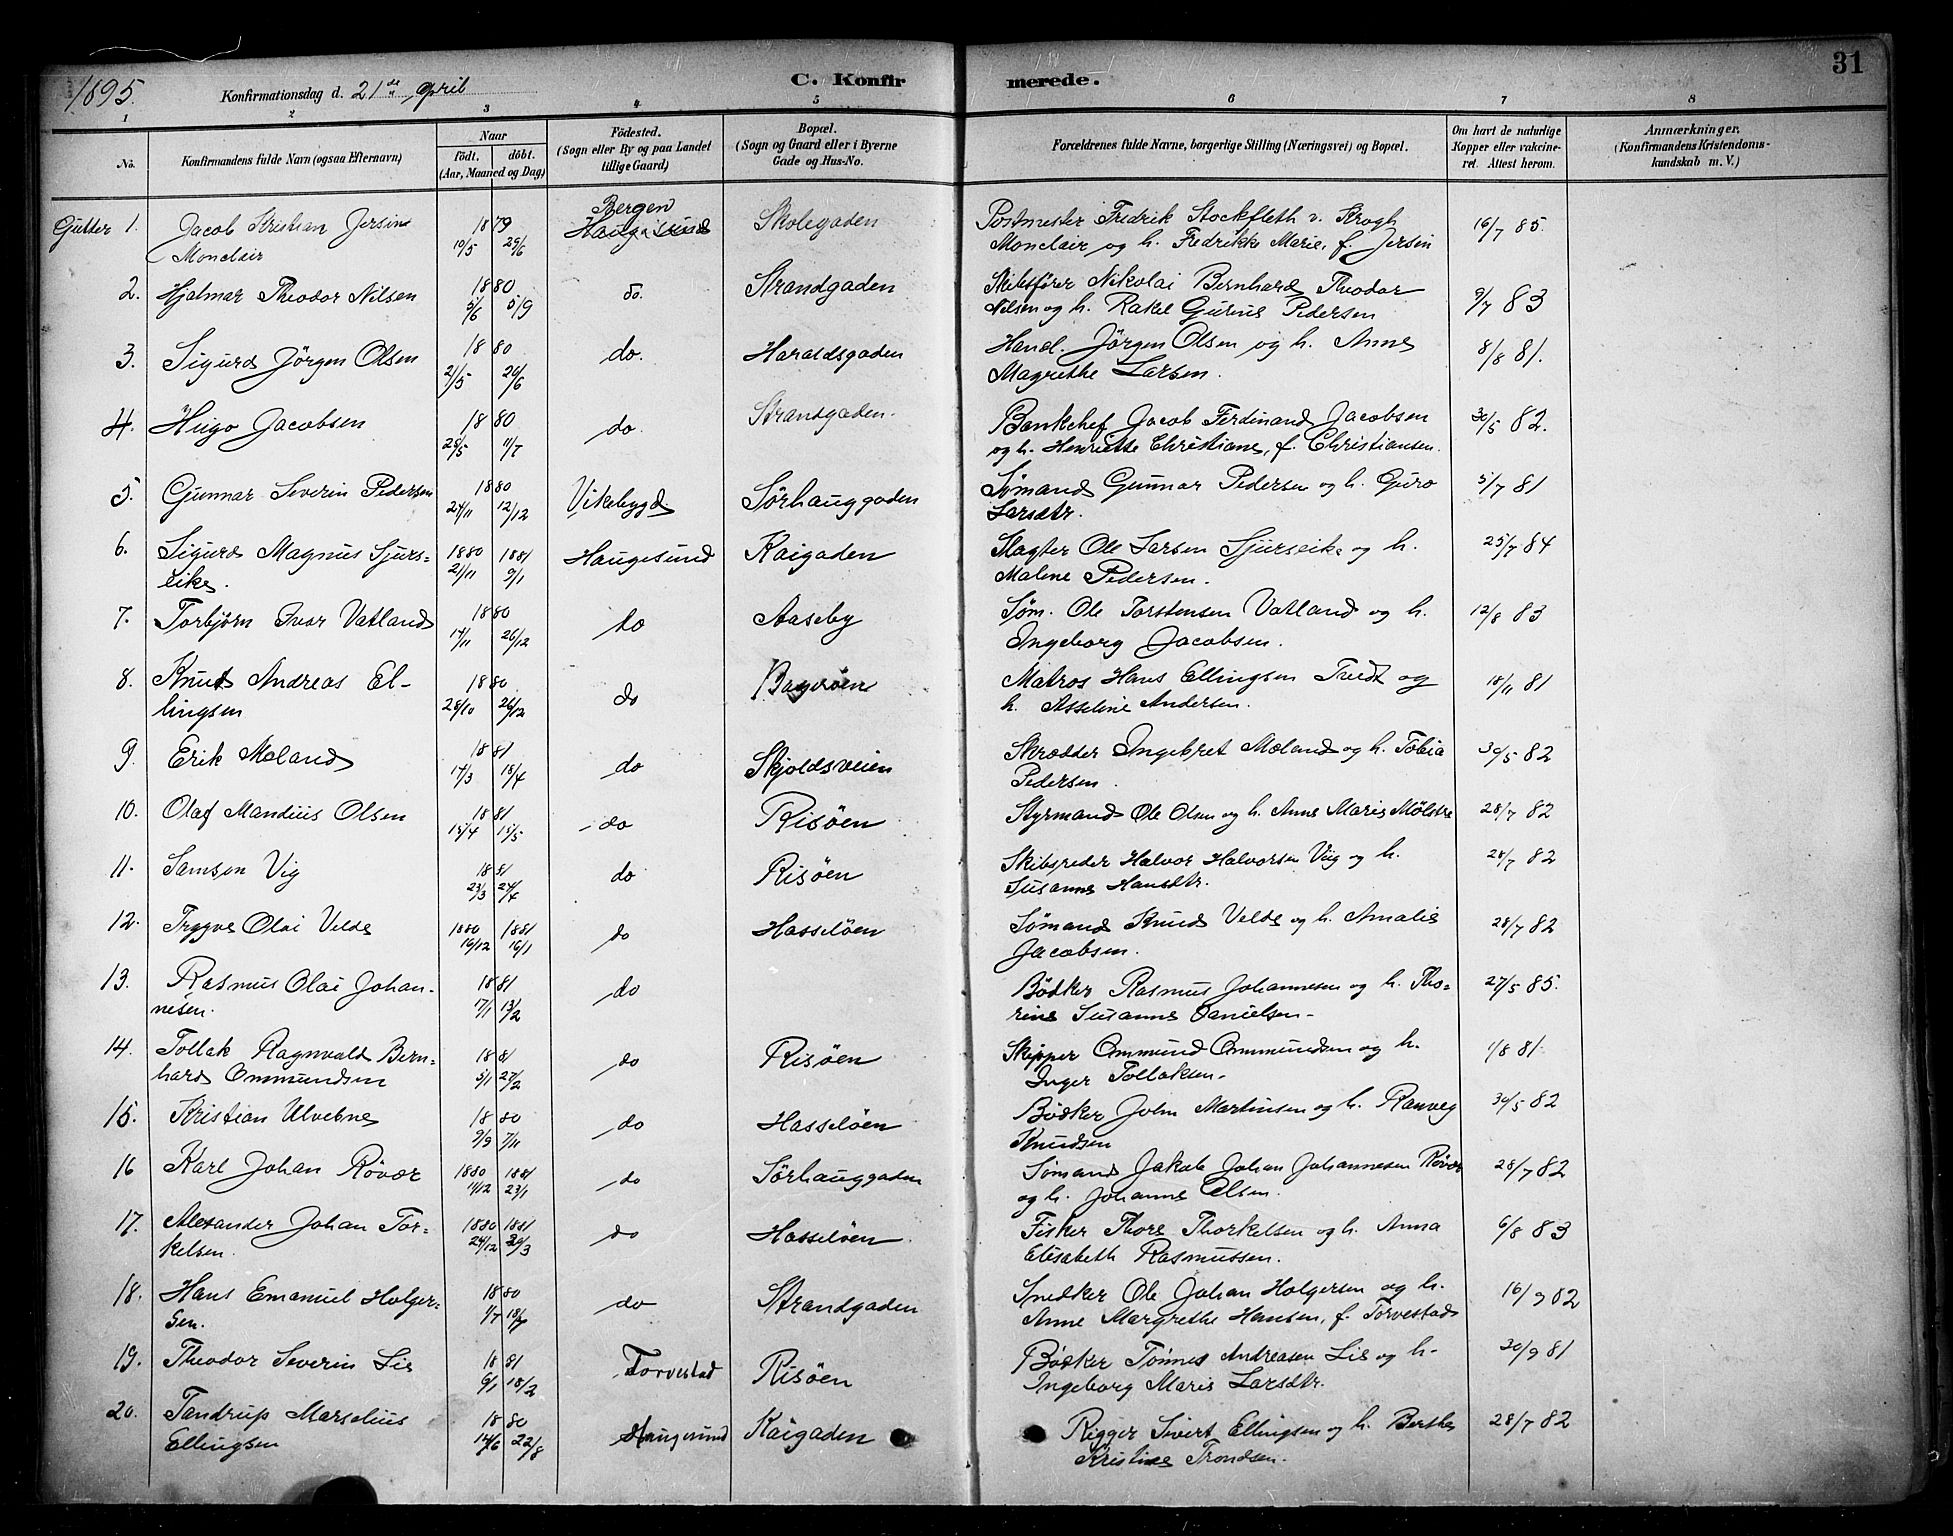 31
1895. Konfirmationsdag d. 21de April C. Konfirmerede.
1 2 3 4 5 6 7 8
No. Konfirmandens fulde Navn (ogsaa Efternavn) Naar födt. döbt. (Aar, Maaned og Dag) Födested. (Sogn eller By og paa Landet tillige Gaard) Bopæl. (Sogn og Gaard eller i Byerne Gade og Hus-No. Forældrenes fulde Navne, borgerlige Stilling (Næringsvei) og Bopæl. Om havt de naturlige Kopper eller vakcineret. Attest herom. Anmærkninger. (Konfirmandens Kristendomskundskab m. V.)
Gutter 1. Jacob Kristian Jersin 1879 Bergen Haugesund Skolegaden Postmester Fredrik Stockfleth v. Krogh 16/7 85.
Monclair 10/5 29/6 Monclair og h. Fredrikke Marie, f. Jersin
2. Hjalmar Theodor Nilsen 1880 do. Strandgaden Skibsfører Nikolai Bernhard Theodor 9/7 83
5/6 5/9 Nilsen og h. Rakel Gurine Pedersen
3. Sigurd Jörgen Olsen 1880 do. Haraldsgaden Hand. Jörgen Olsen og h. Anne 8/8 81.
21/5 24/6 Magrethe Larsen.
4. Hugo Jacobsen 1880 do. Strandgaden. Bankchef Jacob Ferdinand Jacobsen 30/5 82.
25/5 11/7 og h. Henriette Christiane, f. Christiansen.
5. Gunnar Severin Pedersen 1880 Vikebygd Sörhauggaden Sömand Gunnar Pedersen og h. Guro 5/7 81
24/11 12/12 Larsdtr.
6. Sigurd Magnus Sjurs- 1880 1881 Haugesund Kaigaden Slagter Ole Larsen Sjurseike og h. 25/7 84
eike. 21/11 9/1 Malene Pedersen.
7. Torbjörn Ivar Vatland 1880 do Aaseby Söm. Ole Torstensen Vatland og h. 12/8 83
14/11 26/12 Ingeborg Jacobsen.
8. Knut Andreas El- 1880 do Matros Hans Ellingsen Tvedt og 18/11 81
lingsen 28/10 26/12 h. Asseline Andersen.
9. Erik Meland 1881 do Skjoldsveien Skrædder Ingebret Mæland og h. Tobia 30/5 82
14/3 18/4 Pedersen.
10. Olaf Mandius Olsen 1881 do Risöen Styrmand Ole Olsen og h. Anne Marie Mölstre 28/7 82
15/4 15/5
11. Samson Vig 1881 do Risöen Skibsreder Halvor Halvorsen Viig og h. 28/7 82
23/3 24/4 Susanne Hansdtr.
12. Trygve Olai Velde 1880 1881 do Hasselöen Sömand Knud Velde og h. Amalie 28/7 82
16/12 16/1 Jacobsen.
13. Rasmus Olai Johan- 1881 do Bödker Rasmus Johannesen og h. Tho- 27/5 85.
nesen. 17/1 13/2 rine Susanne Danielsen.
14. Tollak Ragnvald Bern- 1881 do Risöen Skipper Ommund Ommundsen og h. 1/8 81
hard Ommundsen 5/1 27/2 Inger Tollaksen.
15. Kristian Ulvebne 1880 do Hasselöen Bödker John Martinsen og h. Ranveg 30/5 82
9/9 7/11 Knudsen
16 Karl Johan Rövær 1880 1881 do Sörhauggaden Sömand Jakob Johan Johannesen Rövær 28/7 82
11/12 23/1 og h. Johanne Olsen.
17. Alexander Johan Tor- 1880 1881 do Hasselöen. Fisker Thore Thorkelsen og h. Anna 6/8 83
kelsen. 24/12 20/3 Elisabeth Rasmussen.
18. Hans Emanuel Holger- 1880 do Strandgaden Snedker Ole Johan Holgersen og h. 16/9 82
sen. 1/7 18/7 Anne Margrethe Hansen, f. Torvestad
19. Theodor Severin Lie 1881 Torvestad Risöen Bödker Tönnes Andreasen Lie og h. 30/9 81
9/1 18/2 Ingeborg Marie Larsdtr.
20. Tandrup Marselius 1880 Haugesund Kaigaden Rigger Sivert Ellingsen og h. Berthe 28/7 82
Ellingsen 14/6 22/8 Kristine Trondsen.